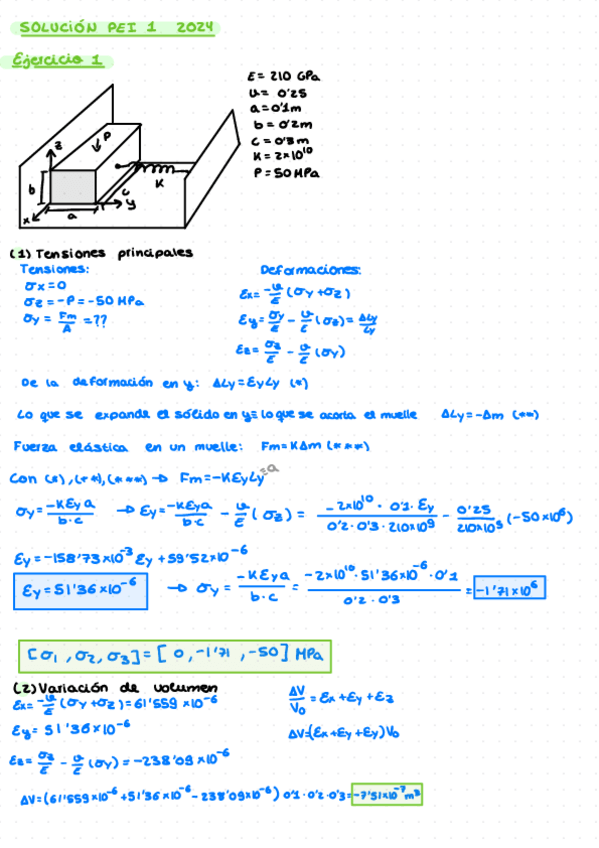 SOLUCIÓN PEI 1 2024
Ejercicio 1
E = 210 GPa
υ = 0'25
a = 0'1m
b = 0'2m
c = 0'3m
K = 2×10¹⁰
P = 50 MPa
z
P
b
K
c
x
a
y
(1) Tensiones principales
Tensiones:
σx = 0
σz = -P = -50 MPa
σy = Fm/A = ??
Deformaciones:
εx = -υ/E (σy + σz)
εy = σy/E - υ/E (σz) = ΔLy/Ly
εz = σz/E - υ/E (σy)
De la deformación en y: ΔLy = εyLy (*)
Lo que se expande el sólido en y ≡ lo que se acorta el muelle ΔLy = -Δm (**)
Fuerza elástica en un muelle: Fm = KΔm (***)
Con (*), (**), (***) → Fm = -KεyLy = a
σy = -Kεya/b·c → εy = -Kεya/b·c - υ/E (σz) = -2×10¹⁰ · 0'1 · εy/0'2 · 0'3 · 210×10⁹ - 0'25/210×10⁹ (-50×10⁶)
εy = -158'73×10⁻³ εy + 59'52×10⁻⁶
εy = 51'36×10⁻⁶ → σy = -Kεya/b·c = -2×10¹⁰ · 51'36×10⁻⁶ · 0'1/0'2 · 0'3 = -1'71×10⁶
[σ1, σ2, σ3] = [0, -1'71, -50] MPa
(2) Variación de volumen
εx = -υ/E (σy + σz) = 61'559 ×10⁻⁶
εy = 51'36×10⁻⁶
εz = σz/E - υ/E (σy) = -238'09×10⁻⁶
ΔV/V₀ = εx + εy + εz
ΔV = (εx + εy + εy) V₀
ΔV = (61'559×10⁻⁶ + 51'36×10⁻⁶ - 238'09×10⁻⁶) 0'1 · 0'2 · 0'3 = -7'51×10⁻⁷ m³